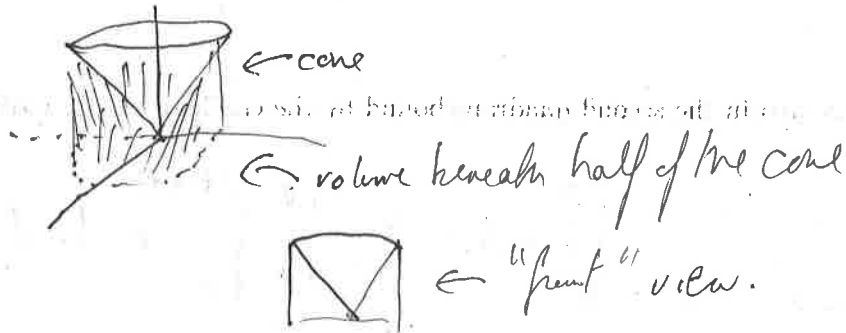 ← cone
← volume beneath half of the cone
← "front" view.